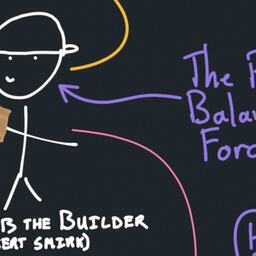 The
Balan
Forc
B THE BUILDER
ERT SMIRK)